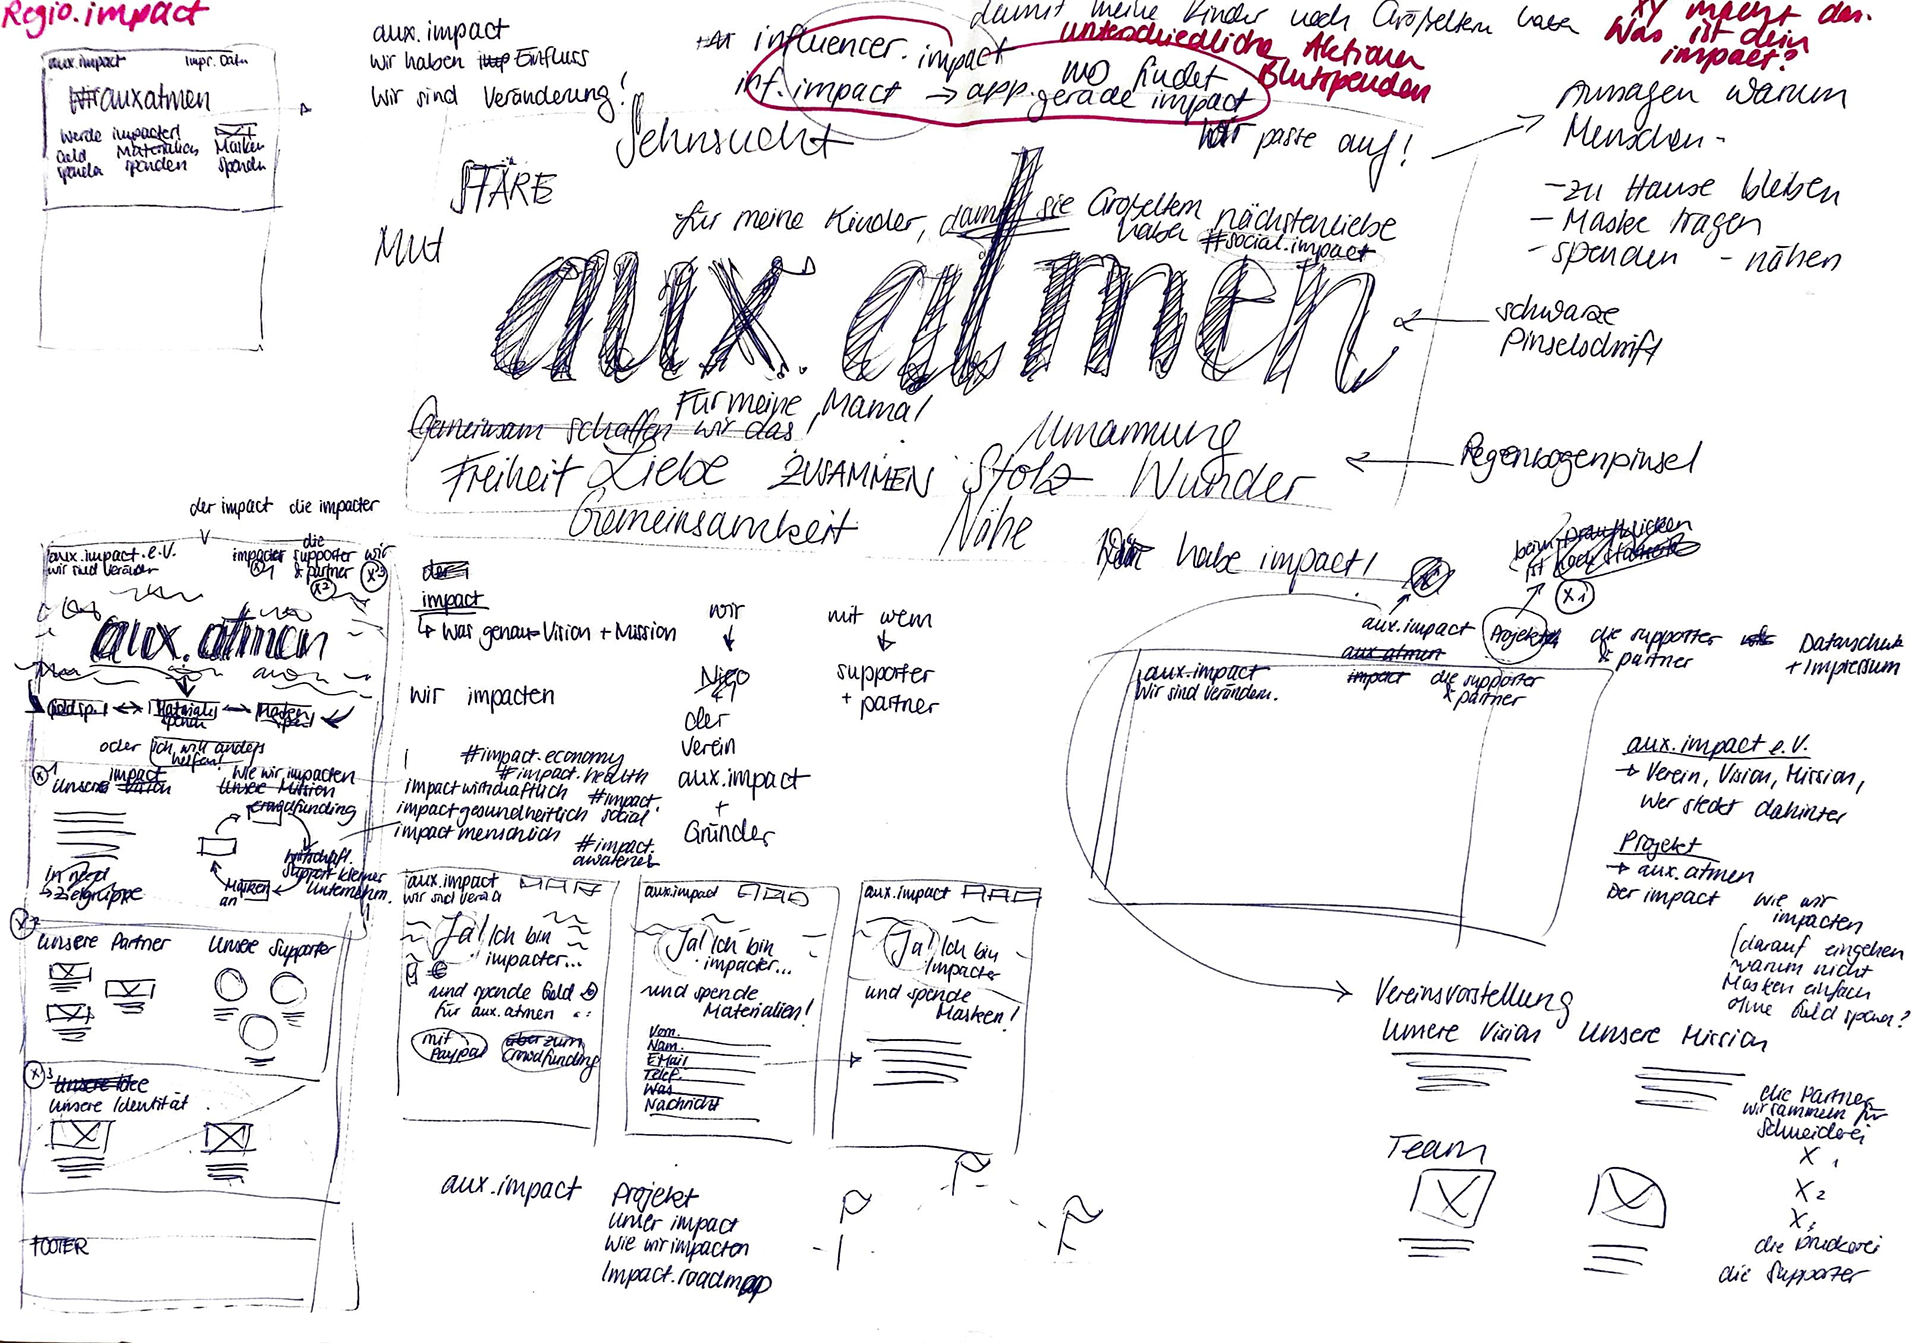 Regio.impact
aux.impact Impr. Datn
auxatmen
Werde impacter!
Geld Materialien Masken
spenden spenden spenden
aux.impact
Wir haben Einfluss
Wir sind Veränderung!
influencer.impact
inf.impact → app. wo findet
gerade impact
damit meine Kinder noch Großeltern haben
unterschiedliche Aktionen
Blutspenden
xy macht das.
Was ist dein
impact?
Aussagen warum
Menschen-
- zu Hause bleiben
- Maske tragen
- spenden - nähen
Sehnsucht
passe auf!
STÄRE
Mut
für meine Kinder, damit sie Großeltern
haben
nächstenliebe
#social.impact
aux.atmen
schwarze
Pinselschrift
Für meine Mama!
Gemeinsam schaffen wir das!
Umarmung
Freiheit Liebe ZUSAMMEN Stolz Wunder
Regenbogenpinsel
Gemeinsamkeit Nähe
habe impact!
der impact die impacter
aux.impact.e.V.
wir sind Veränder
impacter die
supporter
& partner
wir
x1 x2 x3
aux.atmen
Geldsp. ↔ Material
spende ↔ Masken
oder ich will anders
helfen!
x1
unsere impact Vision
Wie wir impacten
unsere Mission
Crowdfunding
wirtschaft.
Support kleiner
Unternehm.
Masken
an
In need
→ Zielgruppe
x2
unsere Partner unsere Supporter
x3
unsere Idee
unsere Identität
FOOTER
der
impact
↳ Was genau Vision + Mission
wir
↓
der
Verein
aux.impact
+
Gründer
mit wem
↓
supporter
+ partner
wir impacten
#impact.economy
#impact.health
impact wirtschaftlich #impact.
impact gesundheitlich social
impact menschlich
#impact.
awarenes
aux.impact
wir sind verä
Ja! Ich bin
impacter...
und spende Geld
für aux.atmen
mit
Paypal
über zum
Crowdfunding
aux.impact
Ja! Ich bin
impacter...
und spende
Materialien!
Vorn.
Nam.
EMail
Telef.
Was
Nachricht
aux.impact
Ja! Ich bin
Impacter
und spende
Masken!
aux.impact
Projekt
unser impact
Wie wir impacten
Impact.roadmap
beim draufklicken
ist
x1
aux.impact Projekt die supporter
& partner
Datenschutz
+ Impressum
aux.atmen
aux.impact
Wir sind Verändern.
impact die supporter
& partner
aux.impact e.V.
→ Verein, Vision, Mission,
Wer steckt dahinter
Projekt
→ aux.atmen
Der impact wie wir
impacten
(darauf eingehen
warum nicht
Masken einfach
ohne Geld spenen?
Vereinsvorstellung
Unsere Vision Unsere Mission
Team
die Partner
wir sammeln für
Schneiderei
x1
x2
x3
die Druckerei
die Supporter